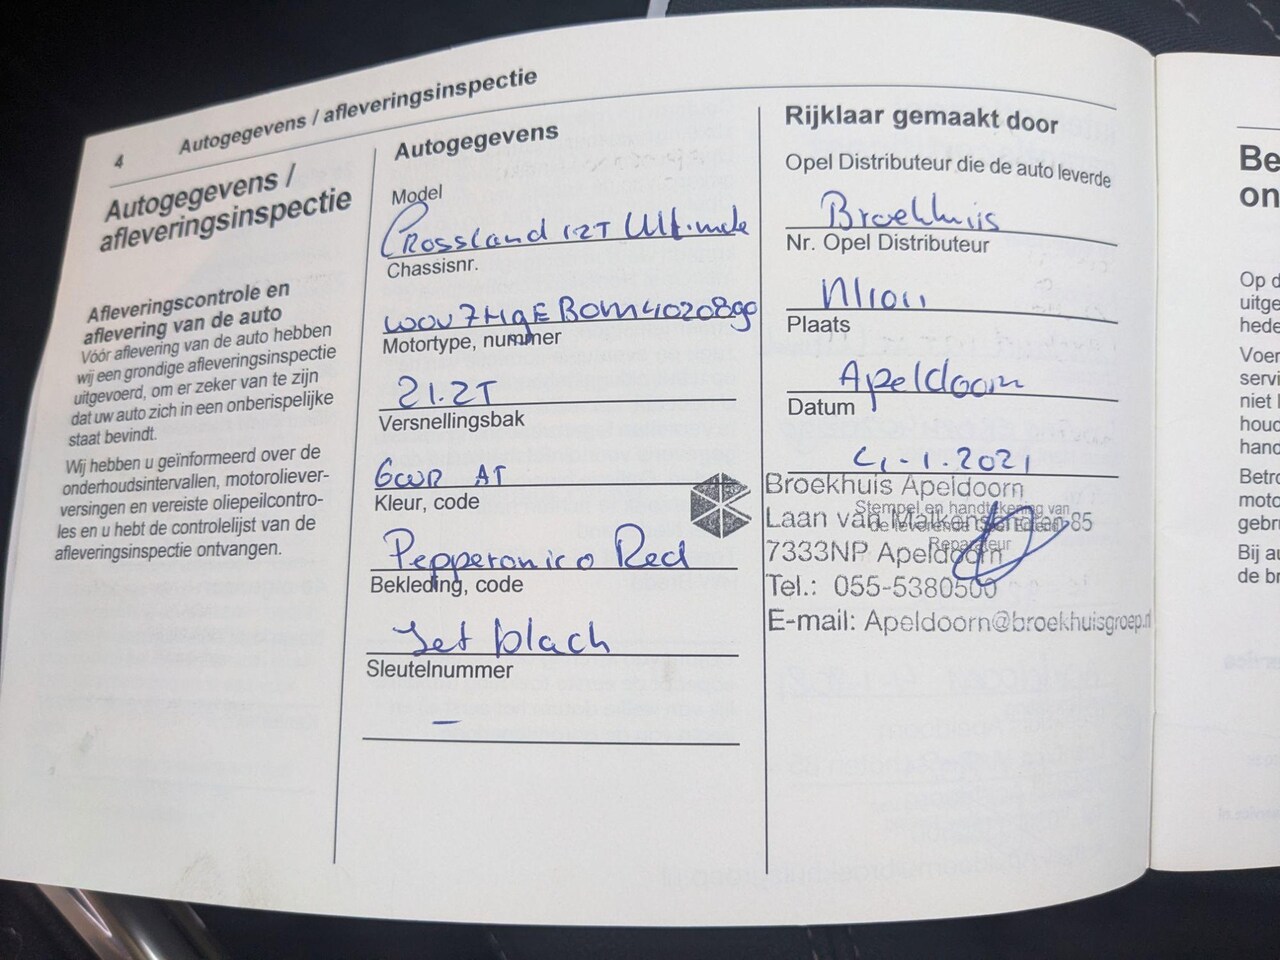 4 Autogegevens / afleveringsinspectie
Autogegevens /
afleveringsinspectie
Afleveringscontrole en
aflevering van de auto
Vóór aflevering van de auto hebben
wij een grondige afleveringsinspectie
uitgevoerd, om er zeker van te zijn
dat uw auto zich in een onberispelijke
staat bevindt.
Wij hebben u geïnformeerd over de
onderhoudsintervallen, motoroliever-
versingen en vereiste oliepeilcontro-
les en u hebt de controlelijst van de
afleveringsinspectie ontvangen.
Autogegevens
Model
Crossland 12T Ultimate
Chassisnr.
W0V7H9EB0M4020890
Motortype, nummer
21.2T
Versnellingsbak
6WR AT
Kleur, code
Pepperonico Red
Bekleding, code
Jet black
Sleutelnummer
–
Rijklaar gemaakt door
Opel Distributeur die de auto leverde
Broekhuis
Nr. Opel Distributeur
Plaats
Apeldoorn
Datum
4-1.2021
Broekhuis Apeldoorn
Stempel en handtekening van
de leverende Opel Erkend
Reparateur
Laan van Malkenschoten 85
7333NP Apeldoorn
Tel.: 055-5380500
E-mail: Apeldoorn@broekhuisgroep.nl
Be
on
Op d
uitge
hede
Voer
servi
niet l
houd
hand
Betro
moto
gebru
Bij au
de br